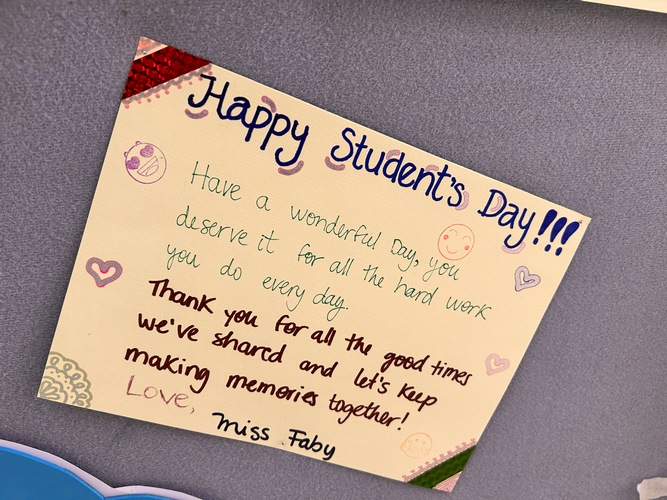 Happy Student's Day!!!
Have a wonderful Day, you
deserve it for all the hard work
you do every day.
Thank you for all the good times
we've shared and let's keep
making memories together!
Love,
Miss Faby